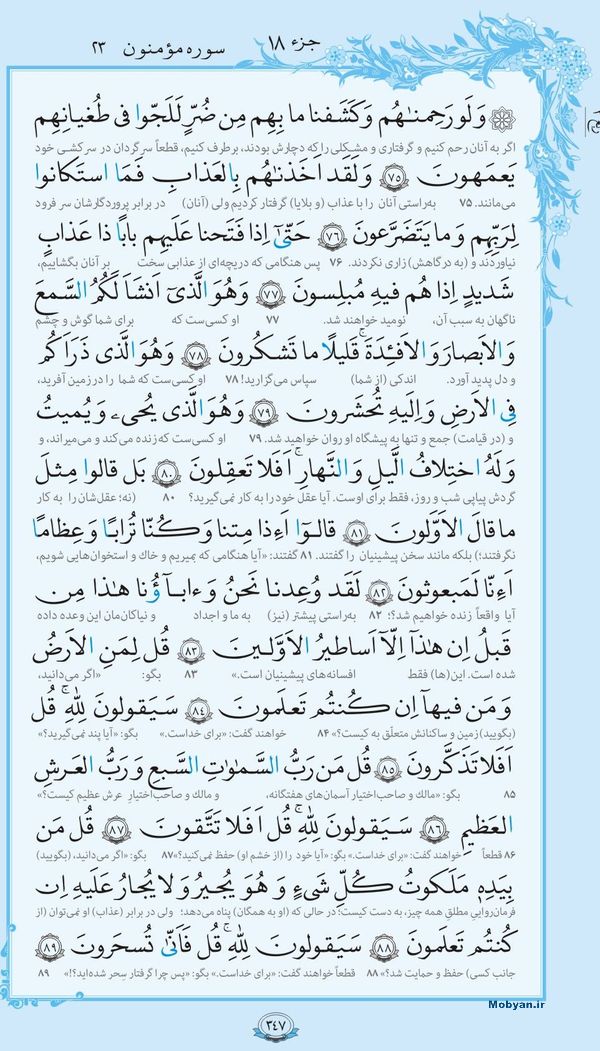 جزء ۱۸
سوره مؤمنون ۲۳
وَلَو رَحِمنٰهُم وَكَشَفنا ما بِهِم مِن ضُرٍّ لَلَجّوا فی طُغیانِهِم
اگر به آنان رحم كنیم و گرفتاری و مشكلی را كه دچارش بودند، برطرف كنیم، قطعاً سرگردان در سركشی خود
یَعمَهونَ ۷۵ وَلَقَد اَخَذنٰهُم بِالعَذابِ فَمَا استَكانوا
می‌مانند. ۷۵ به‌راستی آنان را با عذاب (و بلایا) گرفتار كردیم ولی (آنان) در برابر پروردگارشان سر فرود
لِرَبِّهِم وَما یَتَضَرَّعونَ ۷۶ حَتّیٰٓ اِذا فَتَحنا عَلَیهِم بابًا ذا عَذابٍ
نیاوردند و (به درگاهش) زاری نكردند. ۷۶ پس هنگامی كه دریچه‌ای از عذابی سخت بر آنان بگشاییم،
شَدیدٍ اِذا هُم فیهِ مُبلِسونَ ۷۷ وَهُوَ الَّذیٓ اَنشَاَ لَكُمُ السَّمعَ
ناگهان به سبب آن، نومید خواهند شد. ۷۷ او كسی‌ست كه برای شما گوش و چشم
وَالاَبصارَ وَالاَفـِٔدَةَ ۚ قَلیلًا ما تَشكُرونَ ۷۸ وَهُوَ الَّذی ذَرَاَكُم
و دل پدید آورد. اندكی (از شما) سپاس می‌گزارید! ۷۸ او كسی‌ست كه شما را در زمین آفرید،
فِی الاَرضِ وَاِلَیهِ تُحشَرونَ ۷۹ وَهُوَ الَّذی یُحیی وَیُمیتُ
و (در قیامت) جمع و تنها به پیشگاه او روان خواهید شد. ۷۹ او كسی‌ست كه زنده می‌كند و می‌میراند، و
وَلَهُ اختِلافُ الَّیلِ وَالنَّهارِ ۚ اَفَلا تَعقِلونَ ۸۰ بَل قالوا مِثلَ
گردش پیاپی شب و روز، فقط برای اوست. آیا عقل خود را به كار نمی‌گیرید؟ ۸۰ (نه؛ عقل‌شان را به كار
ما قالَ الاَوَّلونَ ۸۱ قالوٓا اَءِذا مِتنا وَكُنّا تُرابًا وَعِظامًا
نگرفتند؛) بلكه مانند سخن پیشینیان را گفتند. ۸۱ گفتند: «آیا هنگامی كه بمیریم و خاك و استخوان‌هایی شویم،
اَءِنّا لَمَبعوثونَ ۸۲ لَقَد وُعِدنا نَحنُ وَءابآؤُنا هٰذا مِن
آیا واقعاً زنده خواهیم شد؟؛ ۸۲ به‌راستی پیشتر (نیز) به ما و اجداد و نیاكان‌مان این وعده داده
قَبلُ اِن هٰذآ اِلّآ اَساطیرُ الاَوَّلینَ ۸۳ قُل لِمَنِ الاَرضُ
شده است. این(ها) فقط افسانه‌های پیشینیان است.» ۸۳ بگو: «اگر می‌دانید،
وَمَن فیهآ اِن كُنتُم تَعلَمونَ ۸۴ سَیَقولونَ لِلّٰهِ ۚ قُل
(بگویید) زمین و ساكنانش متعلّق به كیست؟» ۸۴ خواهند گفت: «برای خداست.» بگو: «آیا پند نمی‌گیرید؟»
اَفَلا تَذَكَّرونَ ۸۵ قُل مَن رَبُّ السَّمٰوٰتِ السَّبعِ وَرَبُّ العَرشِ
۸۵ بگو: «مالك و صاحب‌اختیار آسمان‌های هفتگانه، و مالك و صاحب‌اختیارِ عرش عظیم كیست؟»
العَظیمِ ۸۶ سَیَقولونَ لِلّٰهِ ۚ قُل اَفَلا تَتَّقونَ ۸۷ قُل مَن
۸۶ قطعاً خواهند گفت: «برای خداست.» بگو: «آیا خود را (از خشم او) حفظ نمی‌كنید؟» ۸۷ بگو: «اگر می‌دانید، (بگویید)
بِیَدِهٖ مَلَكوتُ كُلِّ شَیءٍ وَهُوَ یُجیرُ وَلا یُجارُ عَلَیهِ اِن
فرمان‌رواییِ مطلق همه چیز، به دست كیست؛ در حالی كه (او به همگان) پناه می‌دهد؛ ولی در برابر (عذاب) او نمی‌توان (از
كُنتُم تَعلَمونَ ۸۸ سَیَقولونَ لِلّٰهِ ۚ قُل فَاَنّیٰ تُسحَرونَ ۸۹
جانب كسی) حفظ و حمایت شد؟» ۸۸ قطعاً خواهند گفت: «برای خداست.» بگو: «پس چرا گرفتار سِحر شده‌اید؟!» ۸۹
Mobyan.ir
۳۴۷